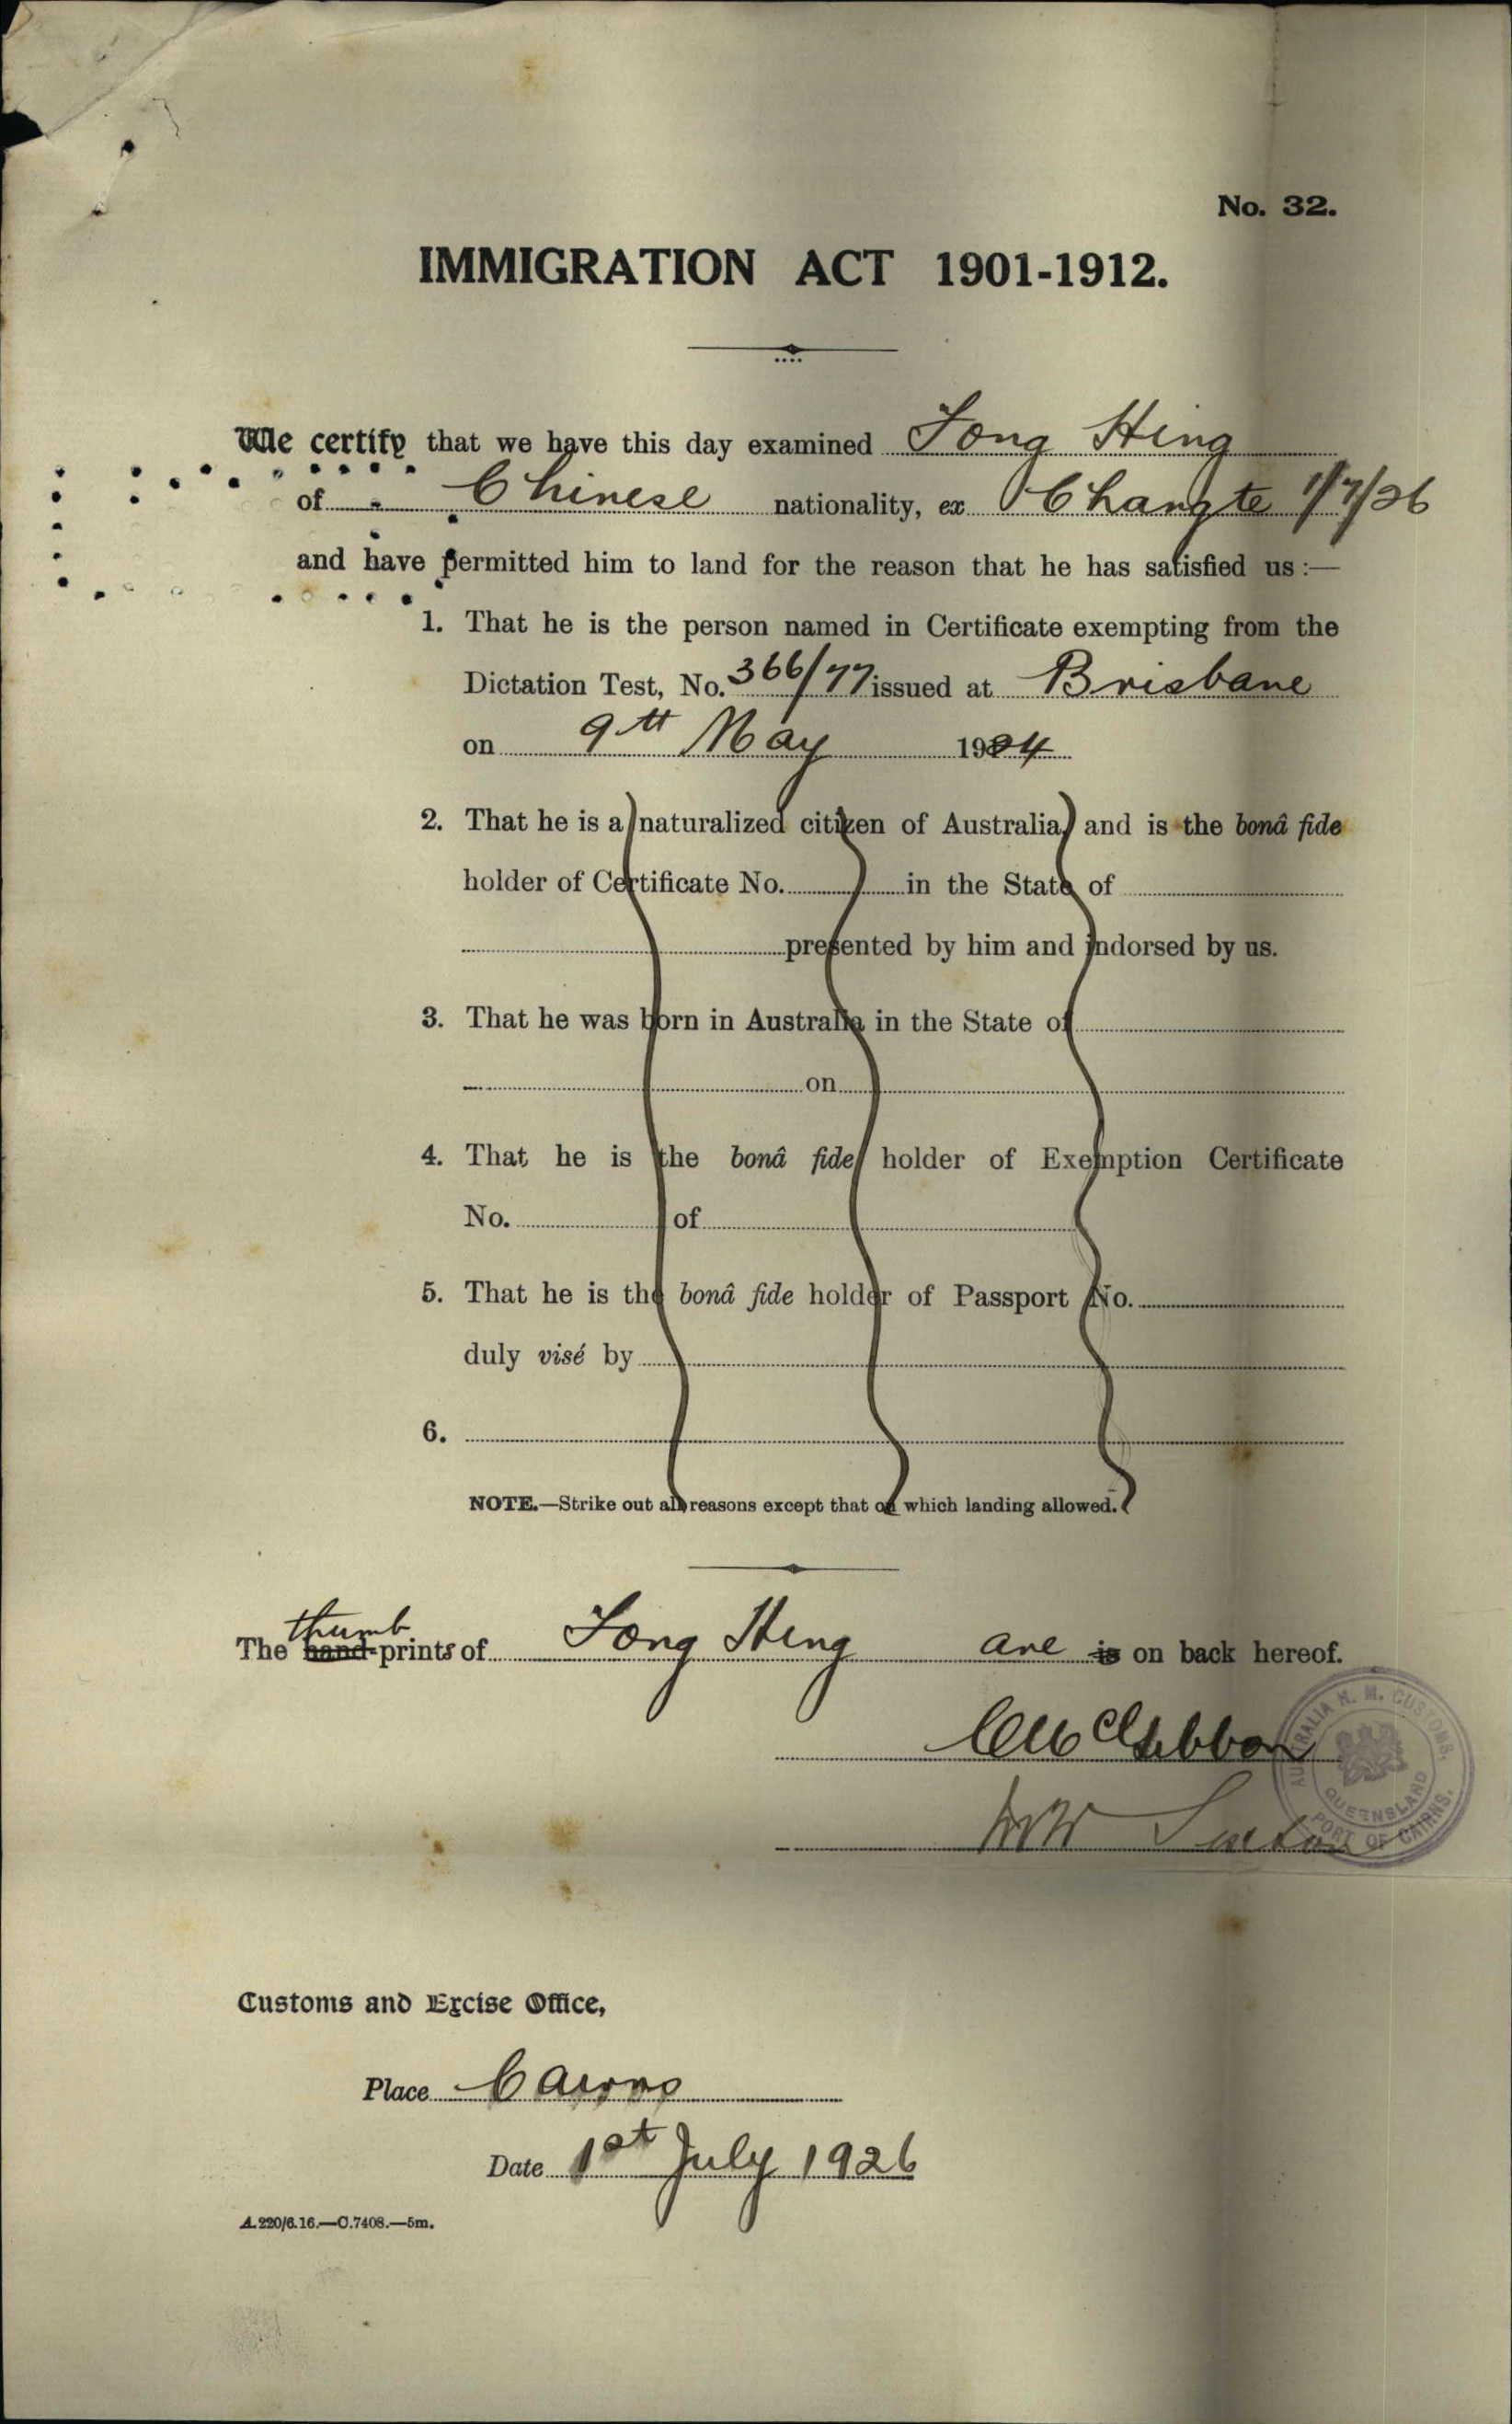 No. 32.
IMMIGRATION ACT 1901-1912.
We certify that we have this day examined Fong Hing
of Chinese nationality, ex Changte 1/7/26
and have permitted him to land for the reason that he has satisfied us :—
1. That he is the person named in Certificate exempting from the
Dictation Test, No. 366/77 issued at Brisbane
on 9th May 1924
2. That he is a naturalized citizen of Australia, and is the bonâ fide
holder of Certificate No. in the State of
presented by him and indorsed by us.
3. That he was born in Australia in the State of
on
4. That he is the bonâ fide holder of Exemption Certificate
No. of
5. That he is the bonâ fide holder of Passport No.
duly visé by
6.
NOTE.—Strike out all reasons except that on which landing allowed.
thumb
The hand-prints of Fong Hing are is on back hereof.
McGibbon
AUSTRALIA H. M. CUSTOMS,
QUEENSLAND
PORT OF CAIRNS.
Customs and Excise Office,
Place Cairns
Date 1st July 1926
A.220/6.16.—C.7408.—5m.